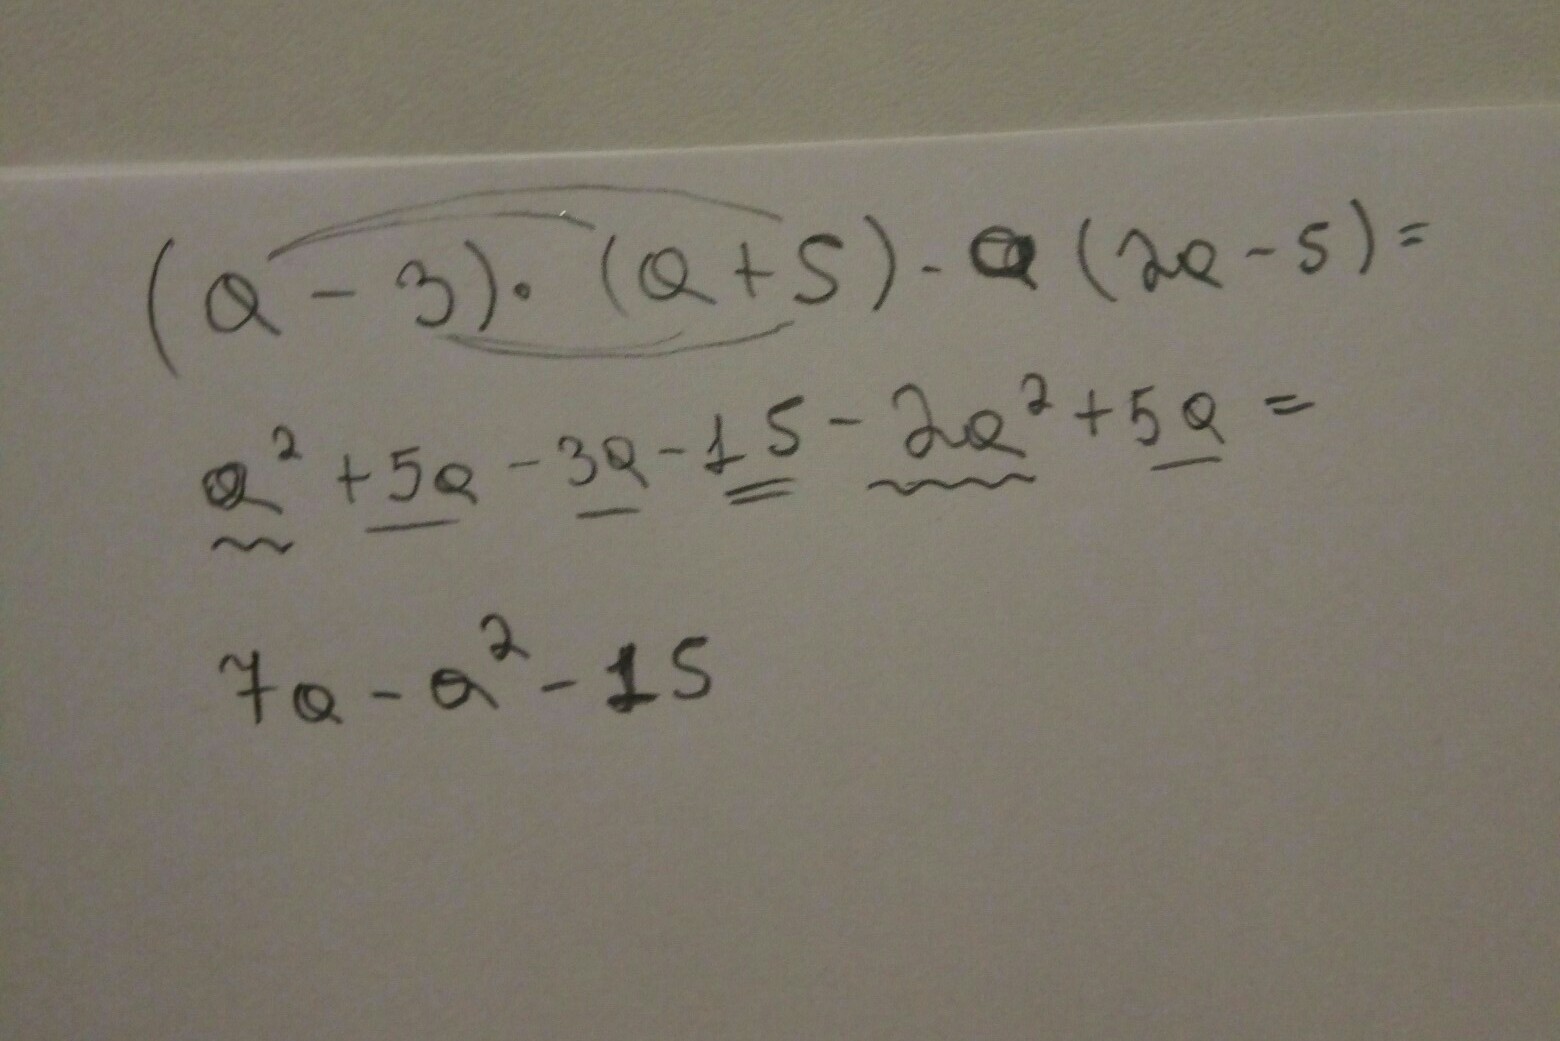 (a - 3) · (a + 5) - a (2a - 5) =
a² + 5a - 3a - 15 - 2a² + 5a =
7a - a² - 15